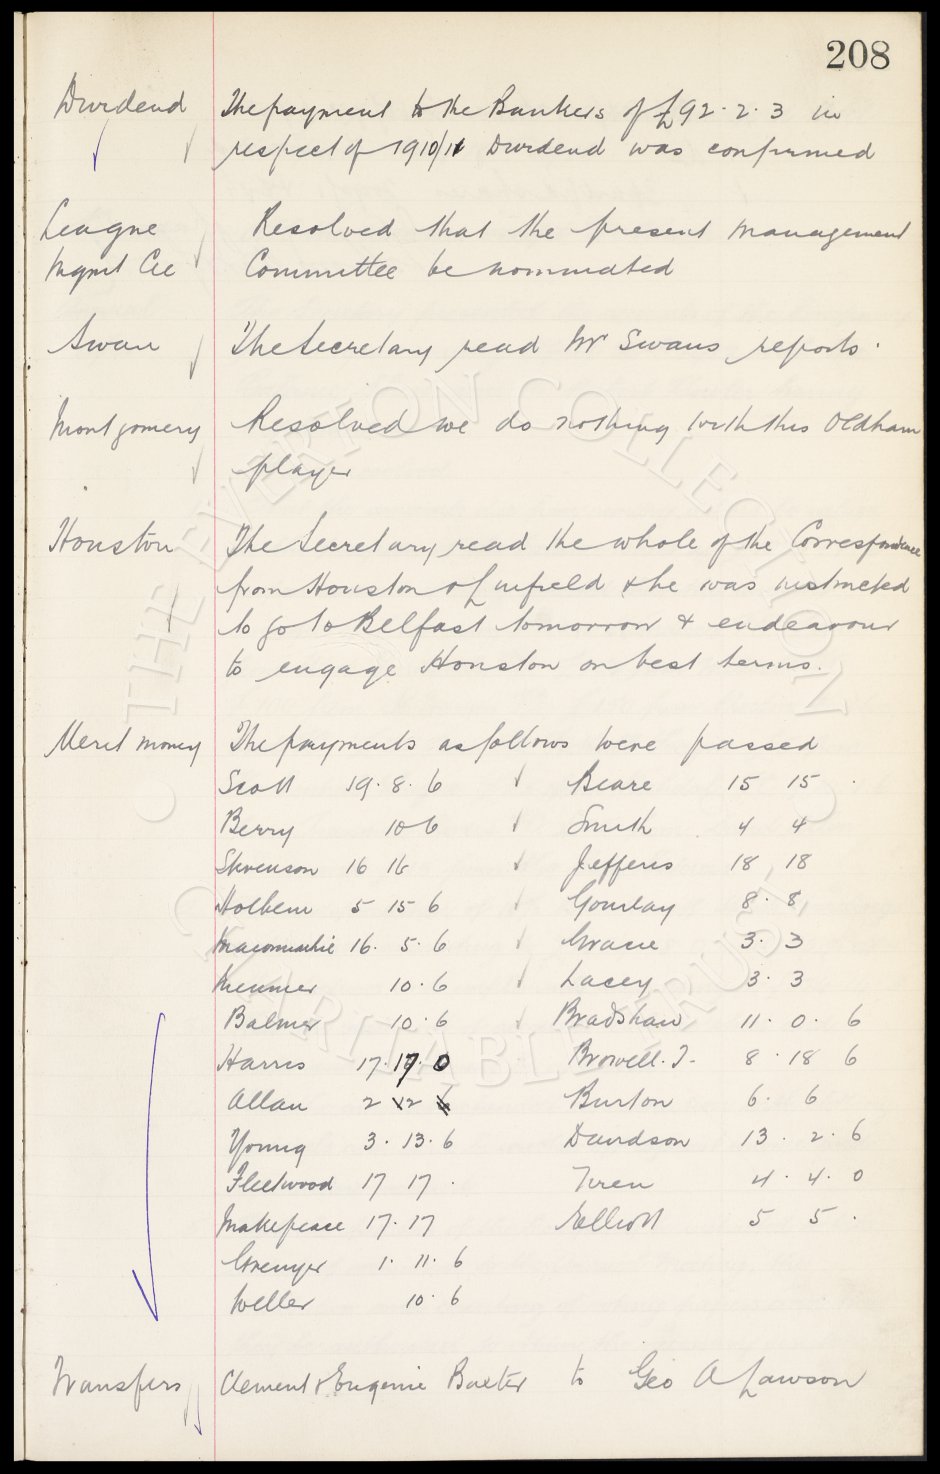 208
Dividend The payment to the Bankers of £92. 2. 3 in
respect of 1910/11 Dividend was confirmed
League Resolved that the present Management
Mgmt Cee Committee be nominated
Swan The Secretary read Mr Swans reports.
Montgomery Resolved we do nothing with this Oldham
player
Houston The Secretary read the whole of the Correspondence
from Houston & Linfield & he was instructed
to go to Belfast tomorrow & endeavour
to engage Houston on best terms.
Merit money The payments as follows were passed
Scott 19. 8. 6 Beare 15 15 .
Berry 10 6 Smith 4 4
Stevenson 16 16 Jefferis 18 18
Holbem 5 15 6 Gourlay 8. 8
Maconnachie 16. 5. 6 Gracie 3. 3
10. 6 Lacey 3. 3
Balmer 10. 6 Bradshaw 11. 0. 6
Harris 17. 17. 0 Browell. T. 8. 18 6
Allan 2 12 6 Burton 6. 6
Young 3. 13. 6 Davidson 13. 2. 6
Fleetwood 17 17 . Uren 4. 4. 0
Makepeace 17. 17 Elliott 5 5 .
Grenyer 1. 11. 6
Weller 10. 6
Transfers Clement & Eugenie Baxter to Geo A Lawson
THE EVERTON COLLECTION
CHARITABLE TRUST